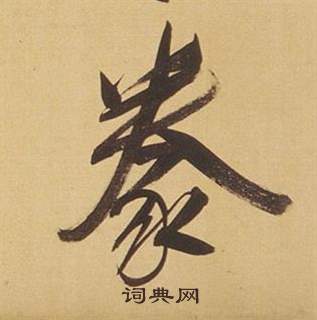 豢
词典网